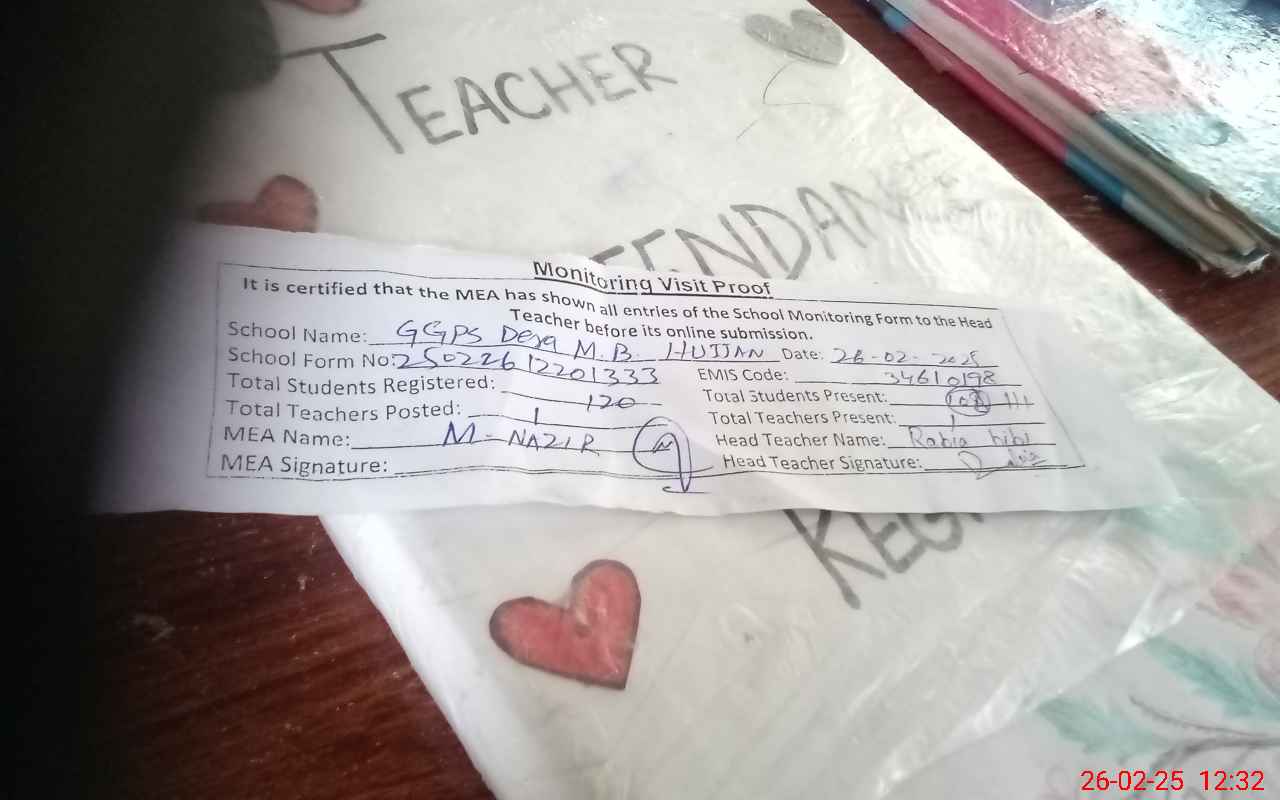 TEACHER
Monitoring Visit Proof
It is certified that the MEA has shown all entries of the School Monitoring Form to the Head
Teacher before its online submission.
School Name: GGPS Dera M.B. HUJJAN Date: 26-02-2025
School Form No: 25022612201333 EMIS Code: 34610198
Total Students Registered: 120 Total Students Present: 108 111
Total Teachers Posted: 1 Total Teachers Present: 1
MEA Name: M-NAZIR Head Teacher Name: Rabia bibi
MEA Signature: Head Teacher Signature:
26-02-25 12:32